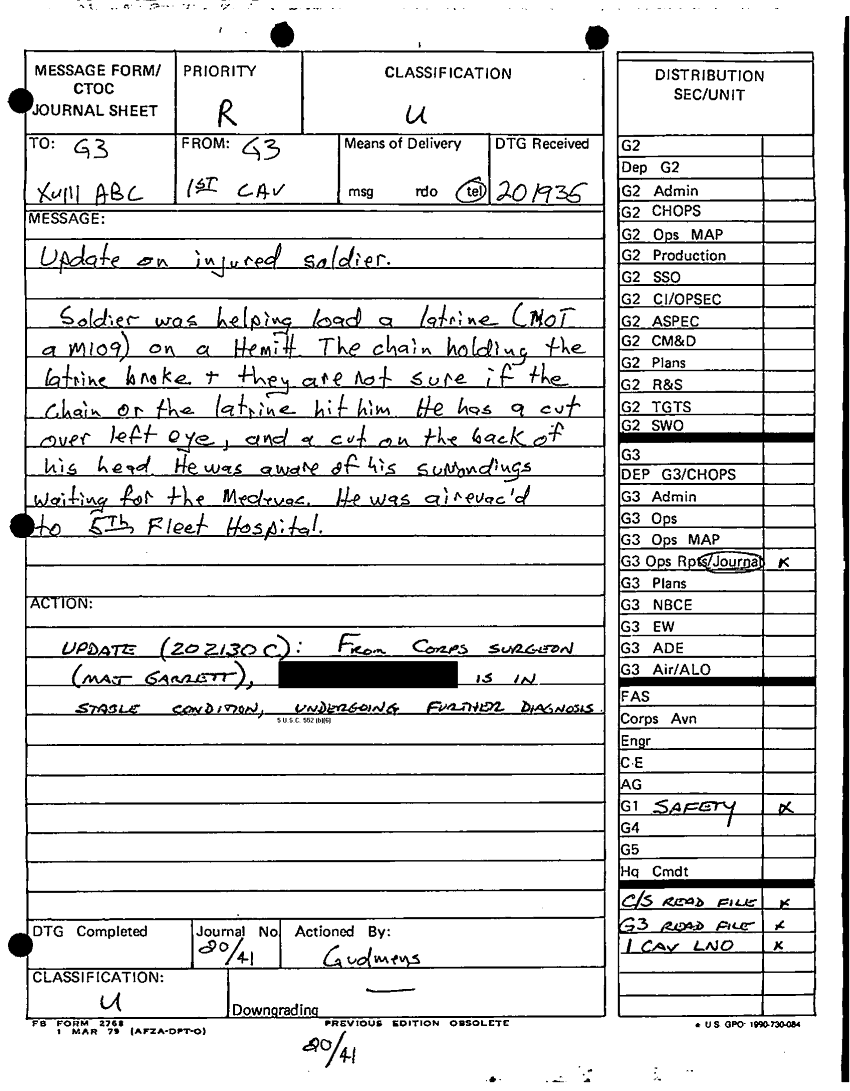 MESSAGE FORM/
CTOC
JOURNAL SHEET
PRIORITY
R
CLASSIFICATION
U
TO: G3
XVIII ABC
FROM: G3
1ST CAV
Means of Delivery
msg rdo tel
DTG Received
201935
MESSAGE:
Update on injured soldier.
Soldier was helping load a latrine (NOT
a M109) on a Hemitt. The chain holding the
latrine broke + they are not sure if the
chain or the latrine hit him. He has a cut
over left eye, and a cut on the back of
his head. He was aware of his surrondings
waiting for the Medevac. He was airevac'd
to 5Th Fleet Hospital.
ACTION:
UPDATE (202130C): From CORPS SURGEON
(MAJ GARRETT), IS IN
STABLE CONDITION, UNDERGOING FURTHER DIAGNOSIS.
5 U.S.C. 552 (b)(6)
DTG Completed
Journal No
20/41
Actioned By:
Gudmens
CLASSIFICATION:
U
Downgrading
FB FORM 2768
1 MAR 79 (AFZA-DPT-O)
PREVIOUS EDITION OBSOLETE
20/41
DISTRIBUTION
SEC/UNIT
G2
Dep G2
G2 Admin
G2 CHOPS
G2 Ops MAP
G2 Production
G2 SSO
G2 CI/OPSEC
G2 ASPEC
G2 CM&D
G2 Plans
G2 R&S
G2 TGTS
G2 SWO
G3
DEP G3/CHOPS
G3 Admin
G3 Ops
G3 Ops MAP
G3 Ops Rpts/Journal x
G3 Plans
G3 NBCE
G3 EW
G3 ADE
G3 Air/ALO
FAS
Corps Avn
Engr
C-E
AG
G1 SAFETY x
G4
G5
Hq Cmdt
C/S READ FILE x
G3 READ FILE x
1 CAV LNO x
U S GPO: 1990-730-084